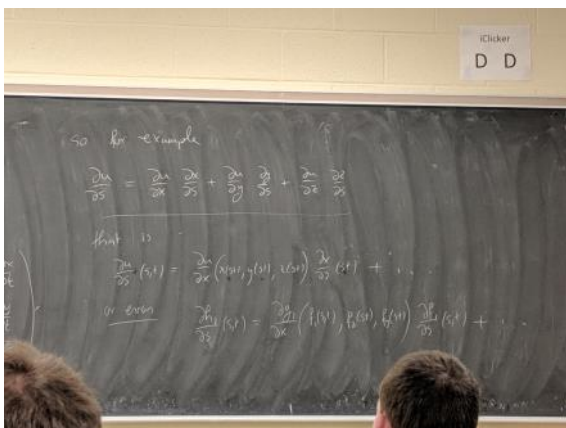 iClicker
D D
so for example
∂u/∂s = ∂u/∂x ∂x/∂s + ∂u/∂y ∂y/∂s + ∂u/∂z ∂z/∂s
that is
∂u/∂s (s,t) = ∂u/∂x (x(s,t), y(s,t), z(s,t)) ∂x/∂s (s,t) + ...
or even ∂h₁/∂s (s,t) = ∂g₁/∂x (f₁(s,t), f₂(s,t), f₃(s,t)) ∂f₁/∂s (s,t) + ...